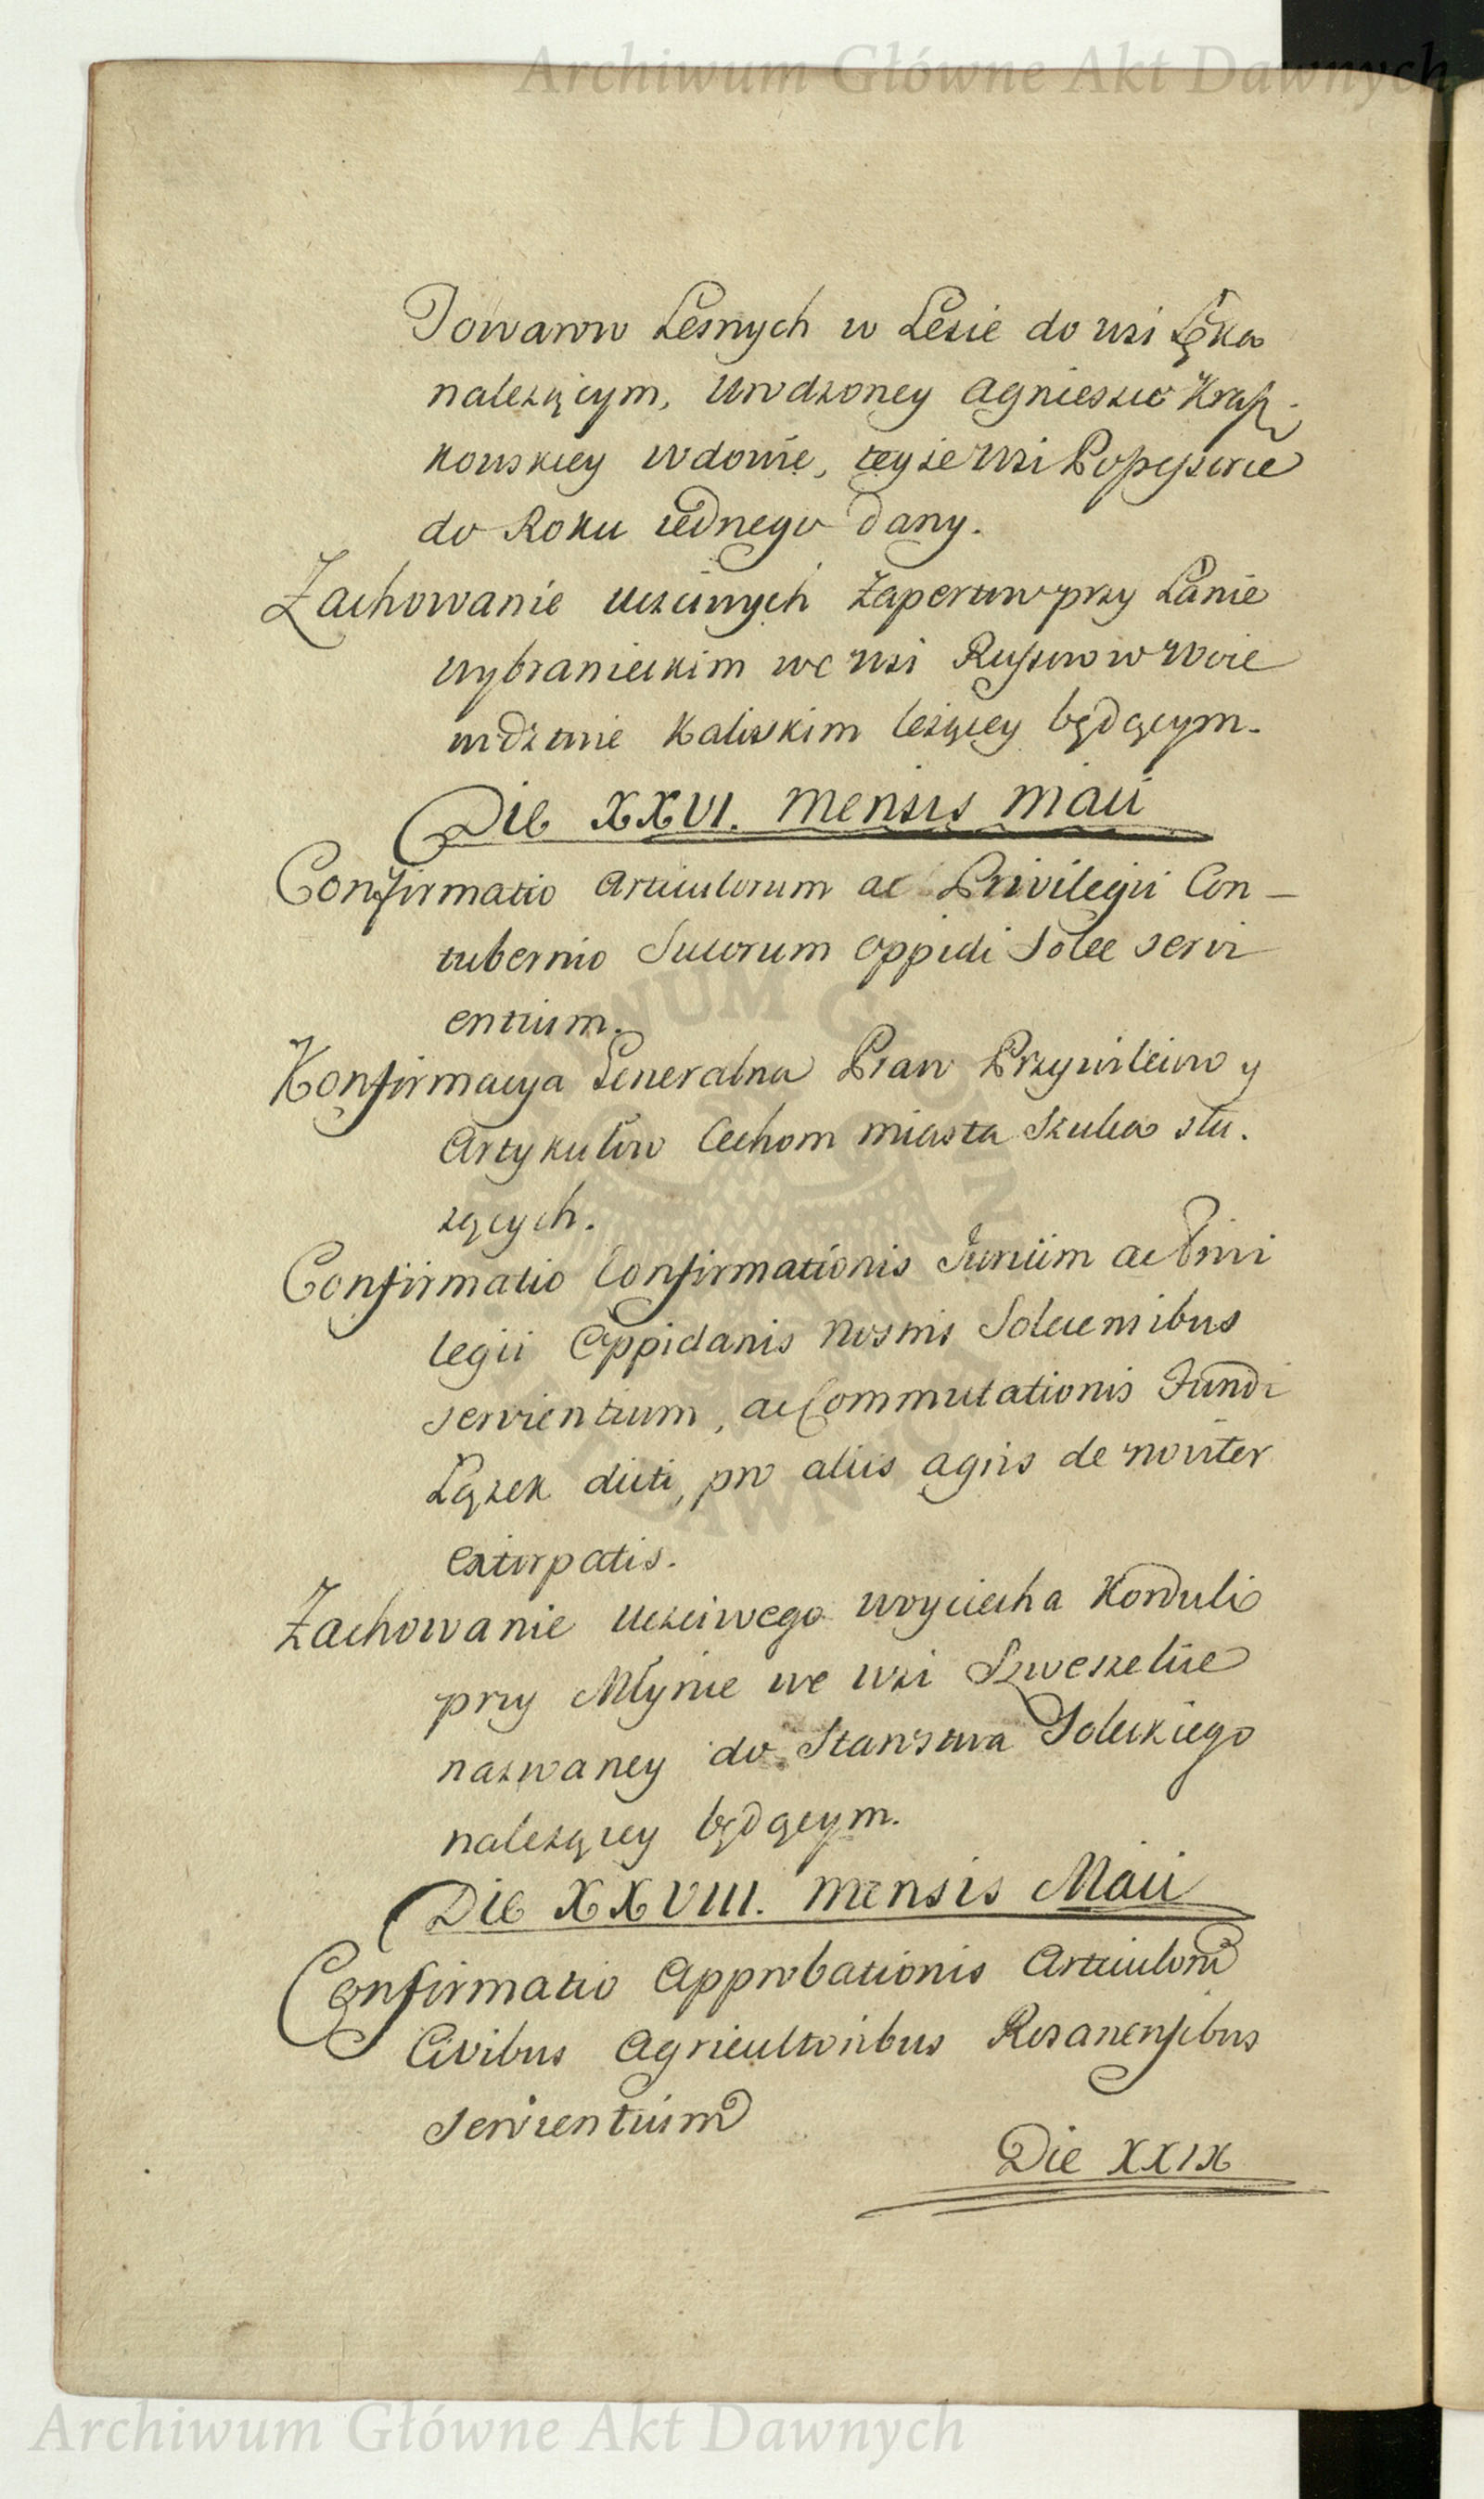 Archiwum Główne Akt Dawnych
Towarow Lesnych w Lesie do wsi Łęka
należącym, Urodzoney Agnieszce Krap-
kowskiey wdowie, teyże wsi Possessorce
do Roku iednego dany.
Zachowanie uczciwych Zaperow przy Łanie
wybranieckim we wsi Russow w Woie
wodztwie Kaliskim leżącey będącym.
Die XXVI. mensis Maii
Confirmatio Articulorum ac Privilegii Con-
tubernio Sutorum oppidi Solec servi
entium.
Konfirmacya Generalna Praw Przywileiow y
Artykułow Cechom miasta Skulsa słu.
żących.
Confirmatio Confirmationis Jurium ac Privi
legii Oppidanis nostris Solecensibus
servientium, ac Commutationis Fundi
Łążek dicti, pro aliis agris de noviter
extirpatis.
Zachowanie Uczciwego Woyciecha Korduli
przy Młynie we wsi
nazwaney do Starostwa Soleckiego
należącey będącym.
Die XXVIII. mensis Maii
Confirmatio Approbationis Articulorū
Civibus Agricultoribus Rozanensibus
servientium
Die XXIX
Archiwum Główne Akt Dawnych